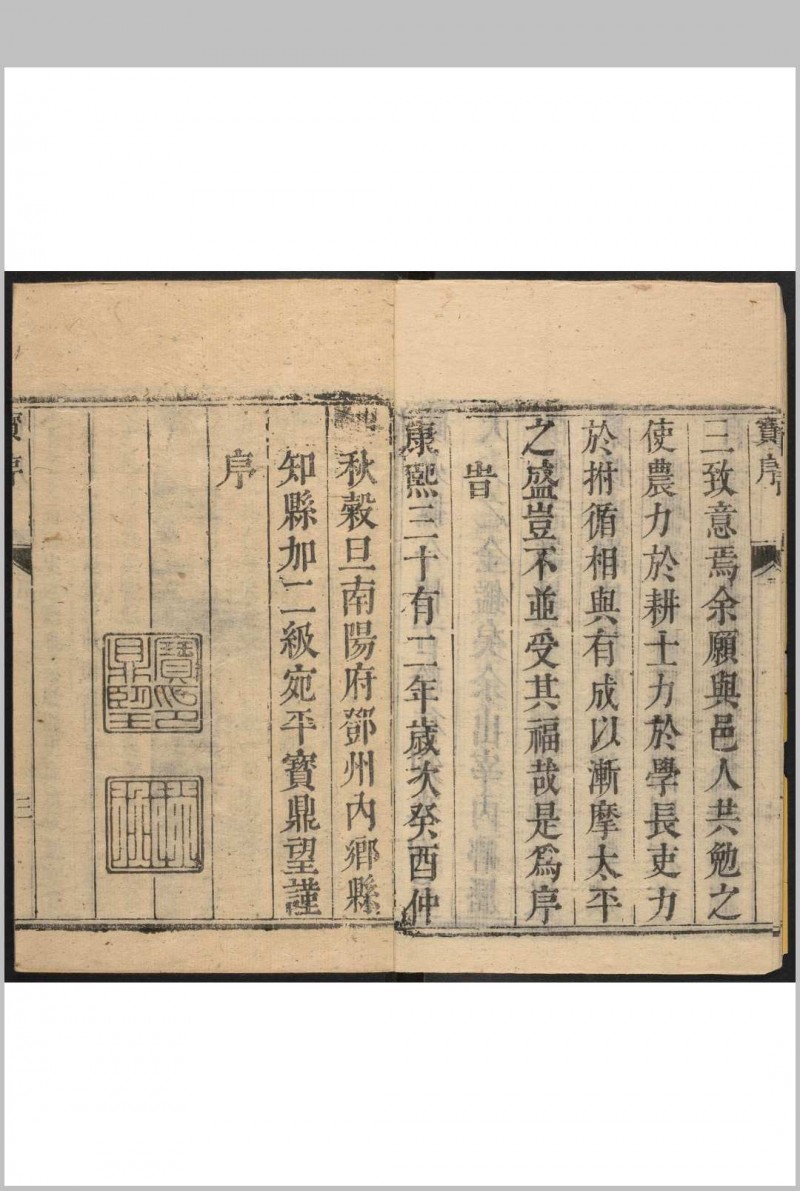 寳序
三致意焉余願與邑人共勉之
使農力於耕士力於學長吏力
於拊循相與有成以漸摩太平
之盛豈不並受其福哉是爲序
旹
康熙三十有二年歲次癸酉仲
秋穀旦南陽府鄧州內鄉縣
知縣加二級宛平寳鼎望謹
序
寳鼎望印
三